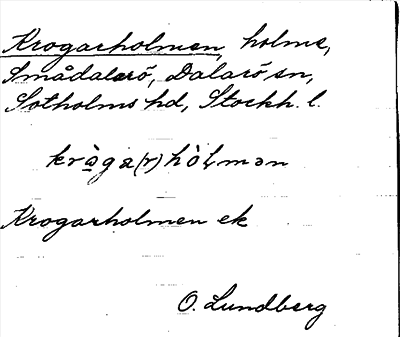 Krogarholmen, holme,
Smådalarö, Dalarö sn,
Sotholms hd, Stockh. l.
krå̀ga(r)hòlmən
Krogarholmen ek
O. Lundberg